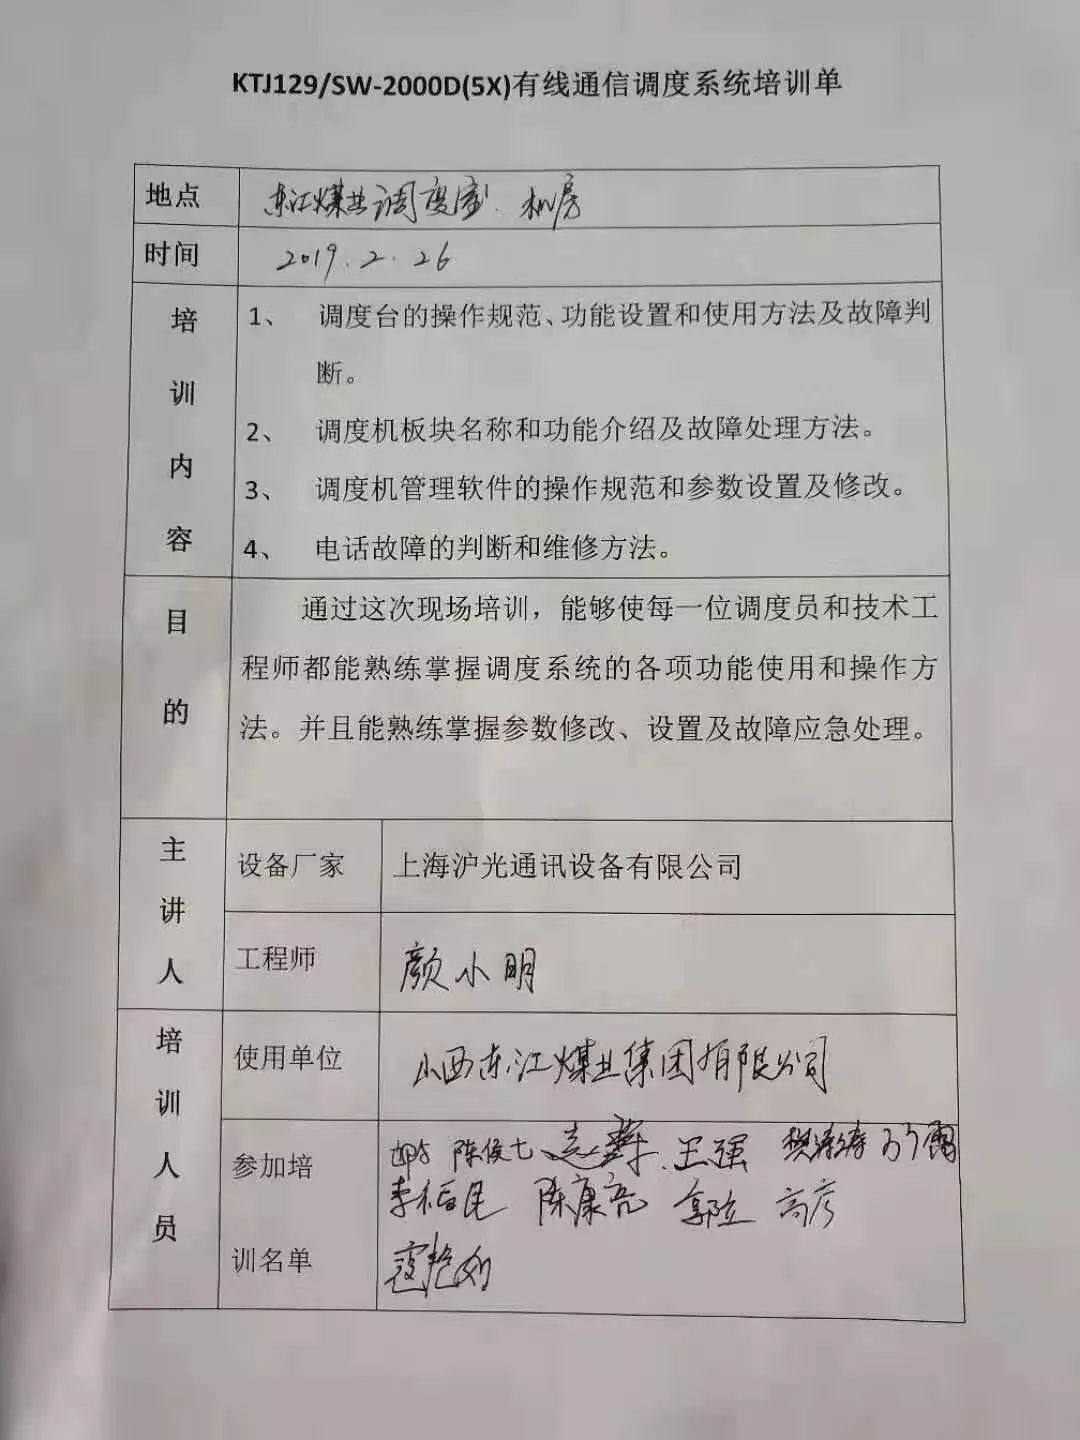 KTJ129/SW-2000D(5X)有线通信调度系统培训单
地点
东江煤业调度室、机房
时间
2019.2.26
培训内容
1、 调度台的操作规范、功能设置和使用方法及故障判
断。
2、 调度机板块名称和功能介绍及故障处理方法。
3、 调度机管理软件的操作规范和参数设置及修改。
4、 电话故障的判断和维修方法。
目的
通过这次现场培训，能够使每一位调度员和技术工
程师都能熟练掌握调度系统的各项功能使用和操作方
法。并且能熟练掌握参数修改、设置及故障应急处理。
主讲人
设备厂家
上海沪光通讯设备有限公司
工程师
颜小明
培训人员
使用单位
山西东江煤业集团有限公司
参加培
训名单
王强
陈康亮 高彦